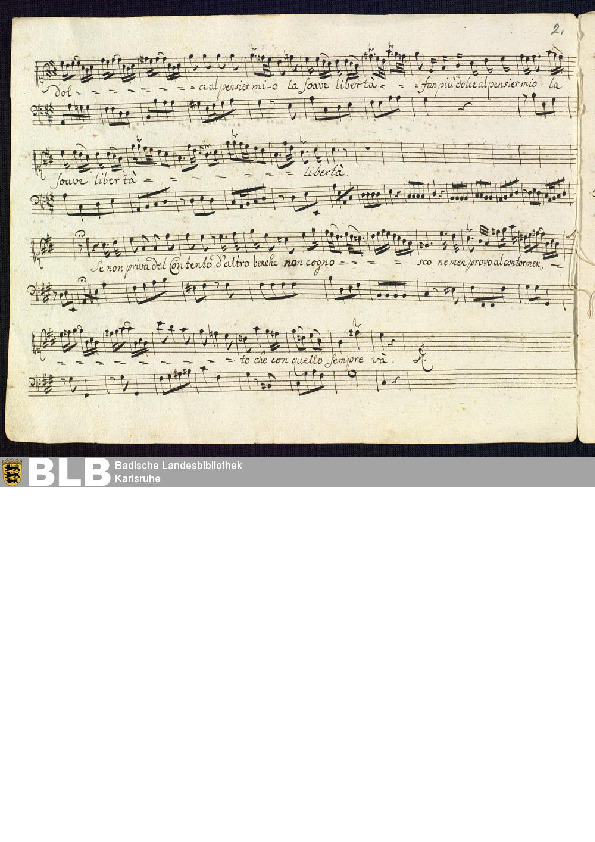 2.
dol - - - - - - - - ce al pensier mi-o la soave libertà - - - fan più dolce al pensier mio la
soave libertà - - - - - - - - - libertà.
Se non priva del contento d'altro bene non cogno - - - - - sco ne men provo al contormen, -
- - - - - - - - - - to che con quello sempre và.
BLB
Badische Landesbibliothek
Karlsruhe